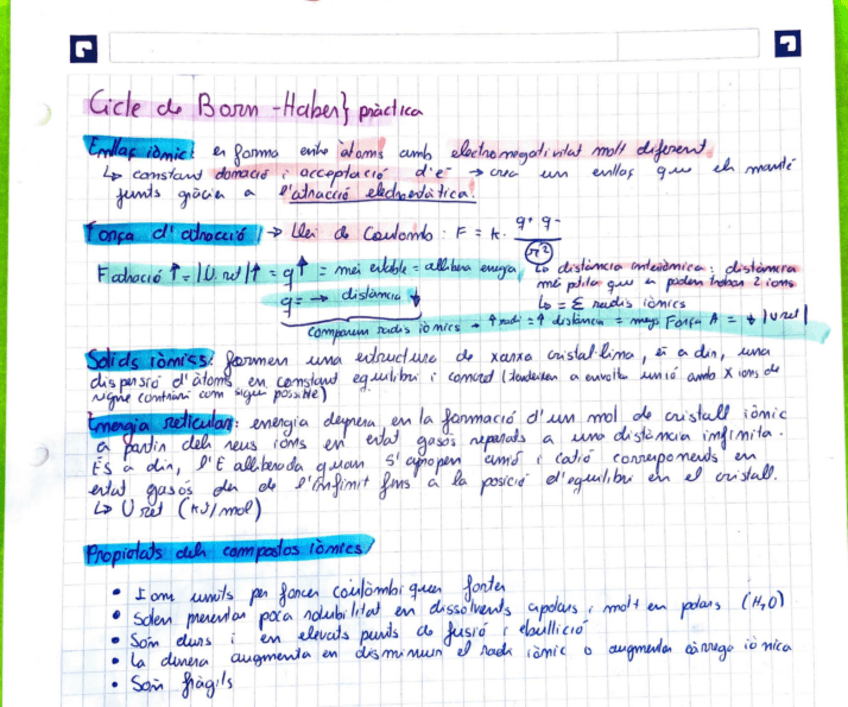 Cicle de Born-Haber } pràctica
Enllaç iònic: es forma entre àtoms amb electronegativitat molt diferent.
↳ constant donació i acceptació d'e⁻ → crea un enllaç que els manté
junts gràcies a l'atracció electrostàtica.
Força d'atracció → Llei de Coulomb: F = k · q⁺ q⁻ / r²
F atracció ↑ = |U ret| ↑ = q ↑ = més estable = allibera energia
↳ distància interiònica: distància
més petita que es poden trobar 2 ions
↳ = Σ radis iònics
q = → distància ↓
comparem radis iònics → ↑ radi = ↑ distància = menys Força A = ↓ |U ret|
Sòlids iònics: formen una estructura de xarxa cristal·lina, és a dir, una
dispersió d'àtoms en constant equilibri i (tendeixen a envoltar unió amb X ions de
signe contrari com sigui possible)
Energia reticular: energia despresa en la formació d'un mol de cristall iònic
a partir dels seus ions en estat gasós separats a una distància infinita.
És a dir, l'E alliberada quan s'apropen anió i catió corresponents en
estat gasós des de l'infinit fins a la posició d'equilibri en el cristall.
↳ U ret (kJ/mol)
Propietats dels compostos iònics
• Ions units per forces coulòmbiques fortes
• Solen presentar poca solubilitat en dissolvents apolars i molt en polars (H₂O)
• Són durs i en elevats punts de fusió i ebullició
• La duresa augmenta en disminuir el radi iònic o augmentar càrrega iònica
• Són fràgils